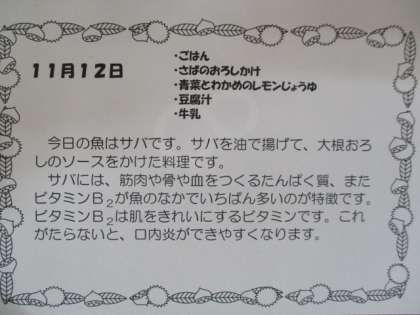 11月12日
・ごはん
・さばのおろしかけ
・青菜とわかめのレモンじょうゆ
・豆腐汁
・牛乳
今日の魚はサバです。サバを油で揚げて、大根おろ
しのソースをかけた料理です。
サバには、筋肉や骨や血をつくるたんぱく質、また
ビタミンB₂が魚のなかでいちばん多いのが特徴です。
ビタミンB₂は肌をきれいにするビタミンです。これ
がたらないと、口内炎ができやすくなります。